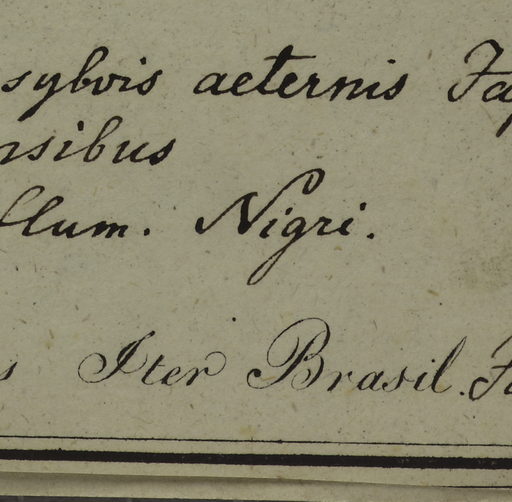 sylvis aeternis Jap
nsibus
flum. Nigri.
s Iter Brasil.